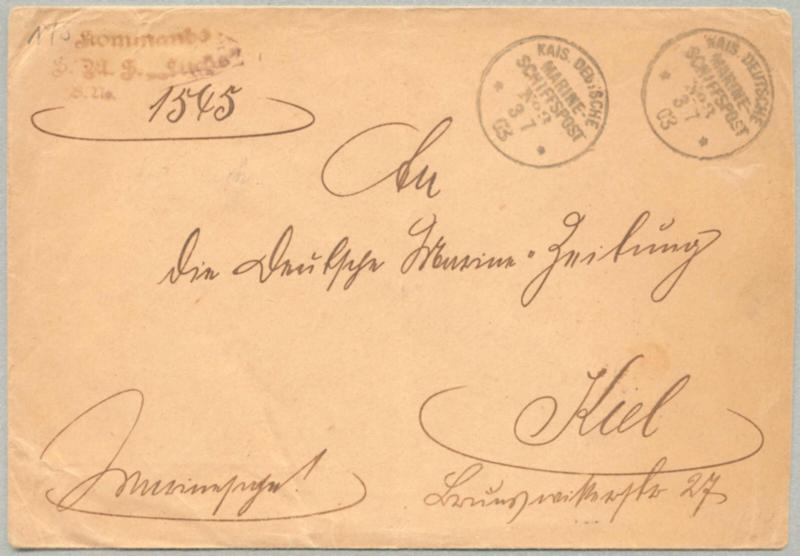 Kommando
S. M. S.
B. No. 1545
KAIS. DEUTSCHE
MARINE-
SCHIFFSPOST
3 7
03
KAIS. DEUTSCHE
MARINE-
SCHIFFSPOST
3 7
03
An
die Deutsche Marine-Zeitung
Kiel
Marinesache!
Brunswikerstr 27